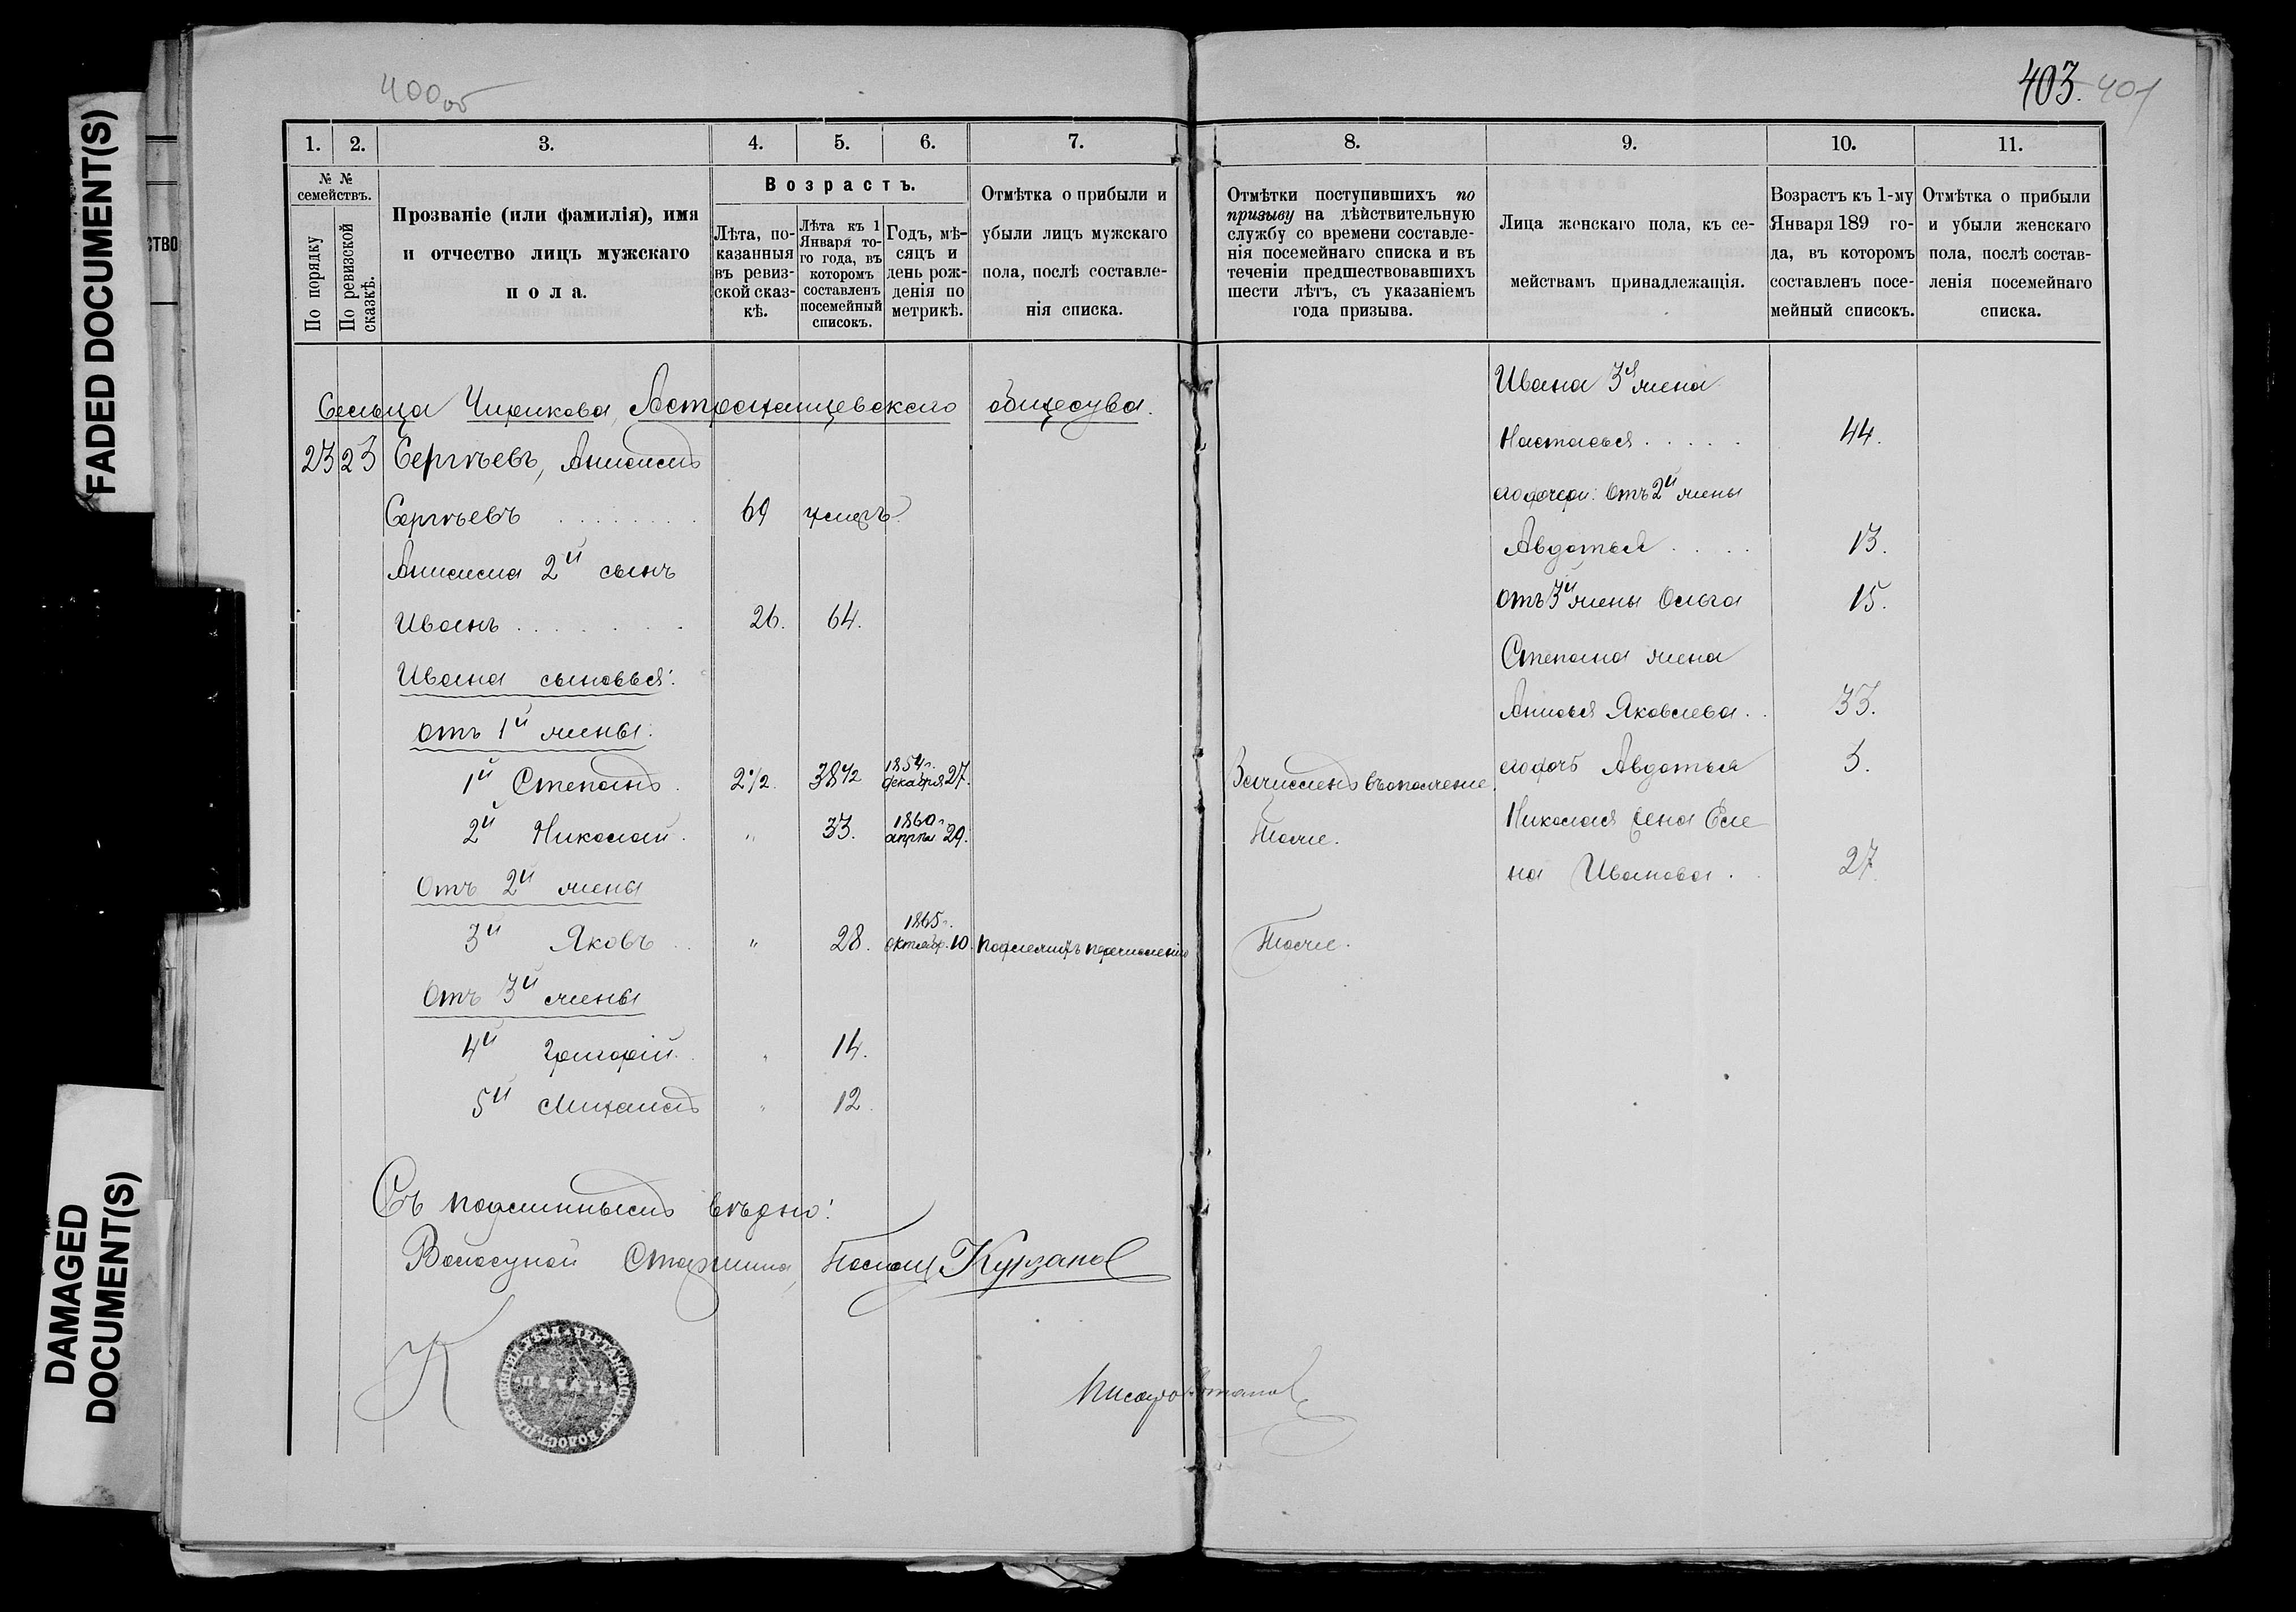 400об
403. 401
1. 2. 3. 4. 5. 6. 7. 8. 9. 10. 11.
№ № семействъ.
По порядку
По ревизской сказкѣ.
Прозваніе (или фамилія), имя
и отчество лицъ мужскаго
пола.
Возрастъ.
Лѣта, по-
казанныя
въ ревиз-
ской сказ-
кѣ.
Лѣта къ 1
Января то-
го года, въ
которомъ
составленъ
посемейный
списокъ.
Годъ, мѣ-
сяцъ и
день рож-
денія по
метрикѣ.
Отмѣтка о прибыли и
убыли лицъ мужскаго
пола, послѣ составле-
нія списка.
Отмѣтки поступившихъ по
призыву на дѣйствительную
службу со времени составле-
нія посемейнаго списка и въ
теченіи предшествовавшихъ
шести лѣтъ, съ указаніемъ
года призыва.
Лица женскаго пола, къ се-
мействамъ принадлежащія.
Возрастъ къ 1-му
Января 189 го-
да, въ которомъ
составленъ посе-
мейный списокъ.
Отмѣтка о прибыли
и убыли женскаго
пола, послѣ состав-
ленія посемейнаго
списка.
Сельца Чирикова, общества.
23 23 Сергѣевъ, Анисимъ
Сергѣевъ 69 умеръ.
Анисима 2й сынъ
Иванъ 26. 64.
Ивана сыновья:
отъ 1й жены:
1й Степанъ. 2 1/2. 38 1/2 1854г. декабря 27. Зачисленъ въ ополченіе.
2й Николай. " 33. 1860г. апрѣл 29. Тоже.
Отъ 2й жены
3й Яковъ " 28. 1865г. октябр. 10. подлежитъ перечисленію Тоже.
Отъ 3й жены
4й Григорій. " 14.
5й Михаилъ " 12.
Ивана 3я жена
Настасья 44.
его дочери: отъ 2й жены
Авдотья 13.
отъ 3й жены Ольга 15.
Степана жена
Анисья Яковлева 33.
его дочь Авдотья 3.
Николая жена Еле-
на Иванова 27.
Съ подлиннымъ вѣрно:
Волостной Старшина, Курзанов
ПЕЧАТЬ
Писарь
FADED DOCUMENT(S)
DAMAGED
DOCUMENT(S)
СТВО